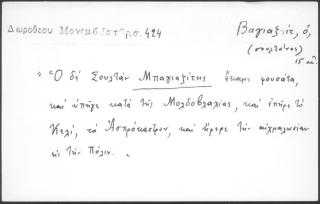 Δωροθέου Μονεμβ. Ἱστορ. σ. 424
Βαγιαζίτ, ὁ,
(σουλτάνος)
15 αἰ.
"Ὁ δὲ Σουλτὰν Μπαγιαζίτης ἔκαμε φουσάτα,
καὶ ὑπῆγε κατὰ τῆς Μολδοβλαχίας, καὶ ἐπῆρε τὸ
Κελί, τὸ Ἀσπρόκαστρον, καὶ ἤφερε τὴν αἰχμαλωσίαν
εἰς τὴν Πόλιν. "